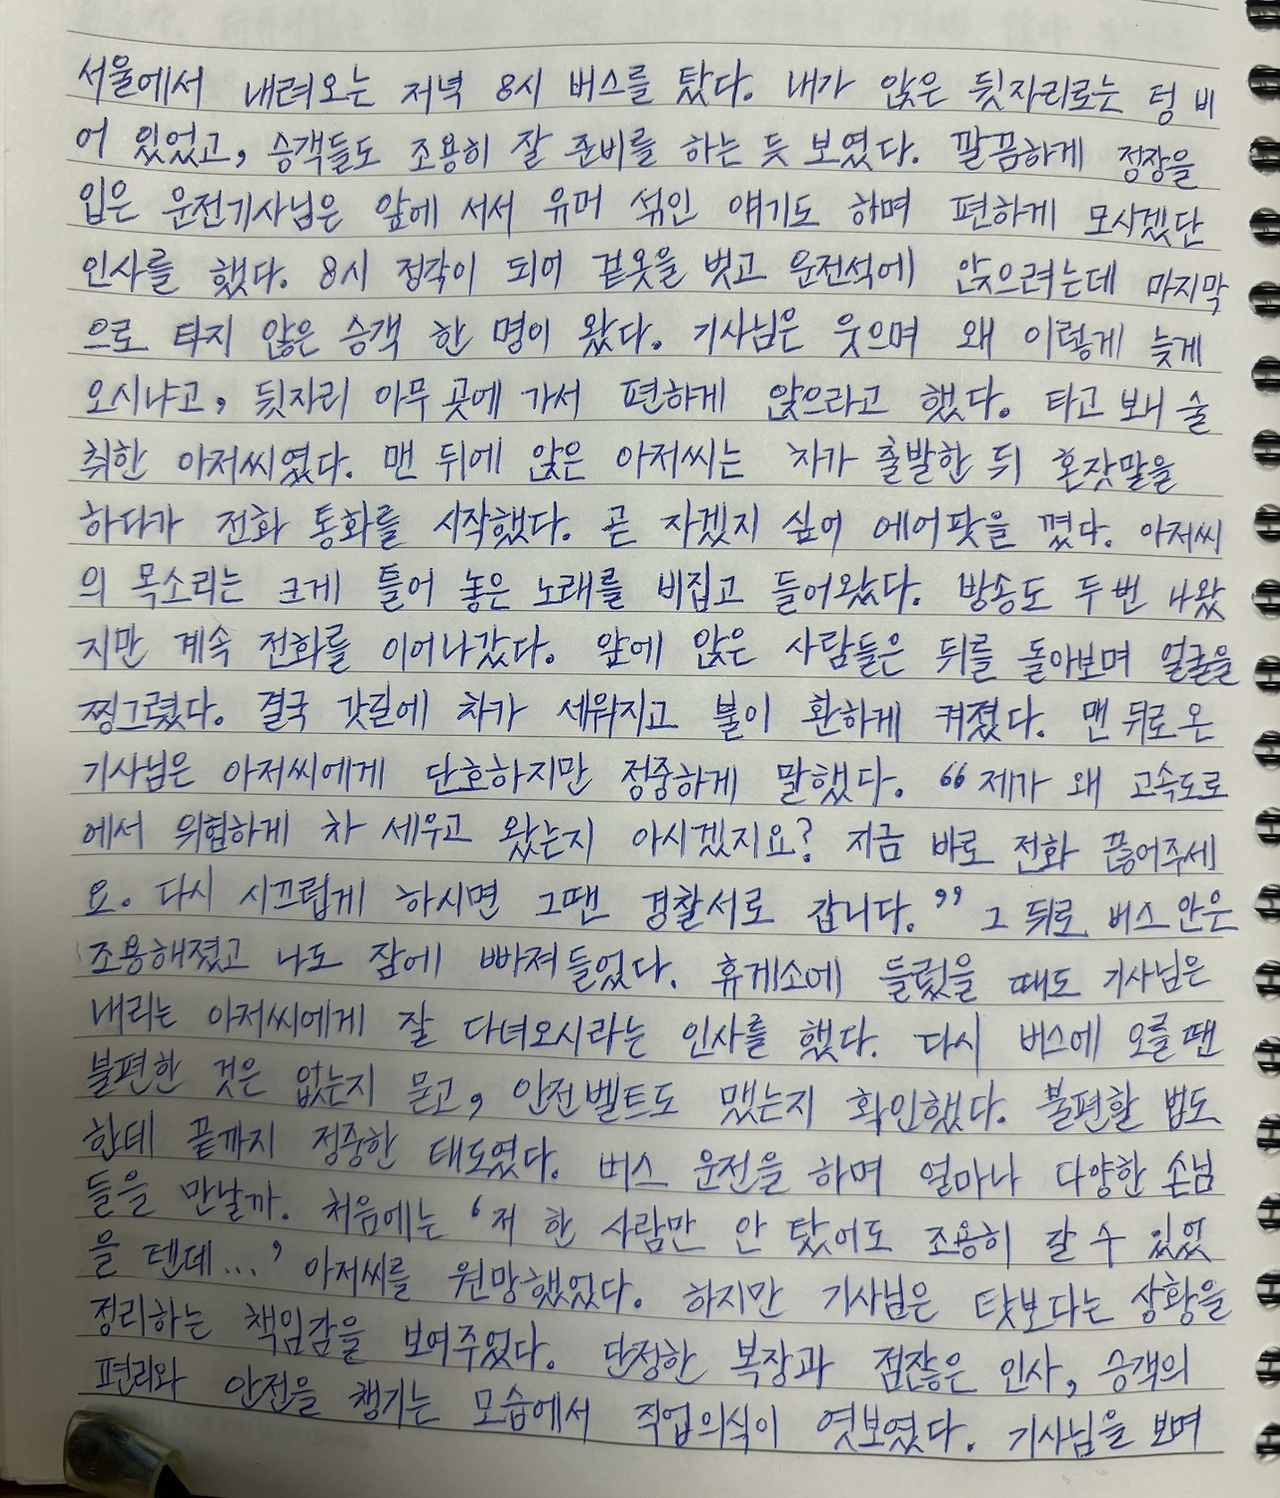 서울에서 내려오는 저녁 8시 버스를 탔다. 내가 앉은 뒷자리로는 텅 비
어 있었고, 승객들도 조용히 잘 준비를 하는 듯 보였다. 깔끔하게 정장을
입은 운전기사님은 앞에 서서 유머 섞인 얘기도 하며 편하게 모시겠단
인사를 했다. 8시 정각이 되어 겉옷을 벗고 운전석에 앉으려는데 마지막
으로 타지 않은 승객 한 명이 왔다. 기사님은 웃으며 왜 이렇게 늦게
오시냐고, 뒷자리 아무 곳에 가서 편하게 앉으라고 했다. 타고 보니 술
취한 아저씨였다. 맨 뒤에 앉은 아저씨는 차가 출발한 뒤 혼잣말을
하다가 전화 통화를 시작했다. 곧 자겠지 싶어 에어팟을 꼈다. 아저씨
의 목소리는 크게 틀어 놓은 노래를 비집고 들어왔다. 방송도 두 번 나왔
지만 계속 전화를 이어나갔다. 앞에 앉은 사람들은 뒤를 돌아보며 얼굴을
찡그렸다. 결국 갓길에 차가 세워지고 불이 환하게 켜졌다. 맨 뒤로 온
기사님은 아저씨에게 단호하지만 정중하게 말했다. “제가 왜 고속도로
에서 위험하게 차 세우고 왔는지 아시겠지요? 지금 바로 전화 끊어주세
요. 다시 시끄럽게 하시면 그땐 경찰서로 갑니다.” 그 뒤로 버스 안은
조용해졌고 나도 잠에 빠져들었다. 휴게소에 들렀을 때도 기사님은
내리는 아저씨에게 잘 다녀오시라는 인사를 했다. 다시 버스에 오를 땐
불편한 것은 없는지 묻고, 안전벨트도 맸는지 확인했다. 불편할 법도
한데 끝까지 정중한 태도였다. 버스 운전을 하며 얼마나 다양한 손님
들을 만날까. 처음에는 ‘저 한 사람만 안 탔어도 조용히 갈 수 있었
을 텐데...’ 아저씨를 원망했었다. 하지만 기사님은 탓보다는 상황을
정리하는 책임감을 보여주었다. 단정한 복장과 점잖은 인사, 승객의
편리와 안전을 챙기는 모습에서 직업의식이 엿보였다. 기사님을 보며